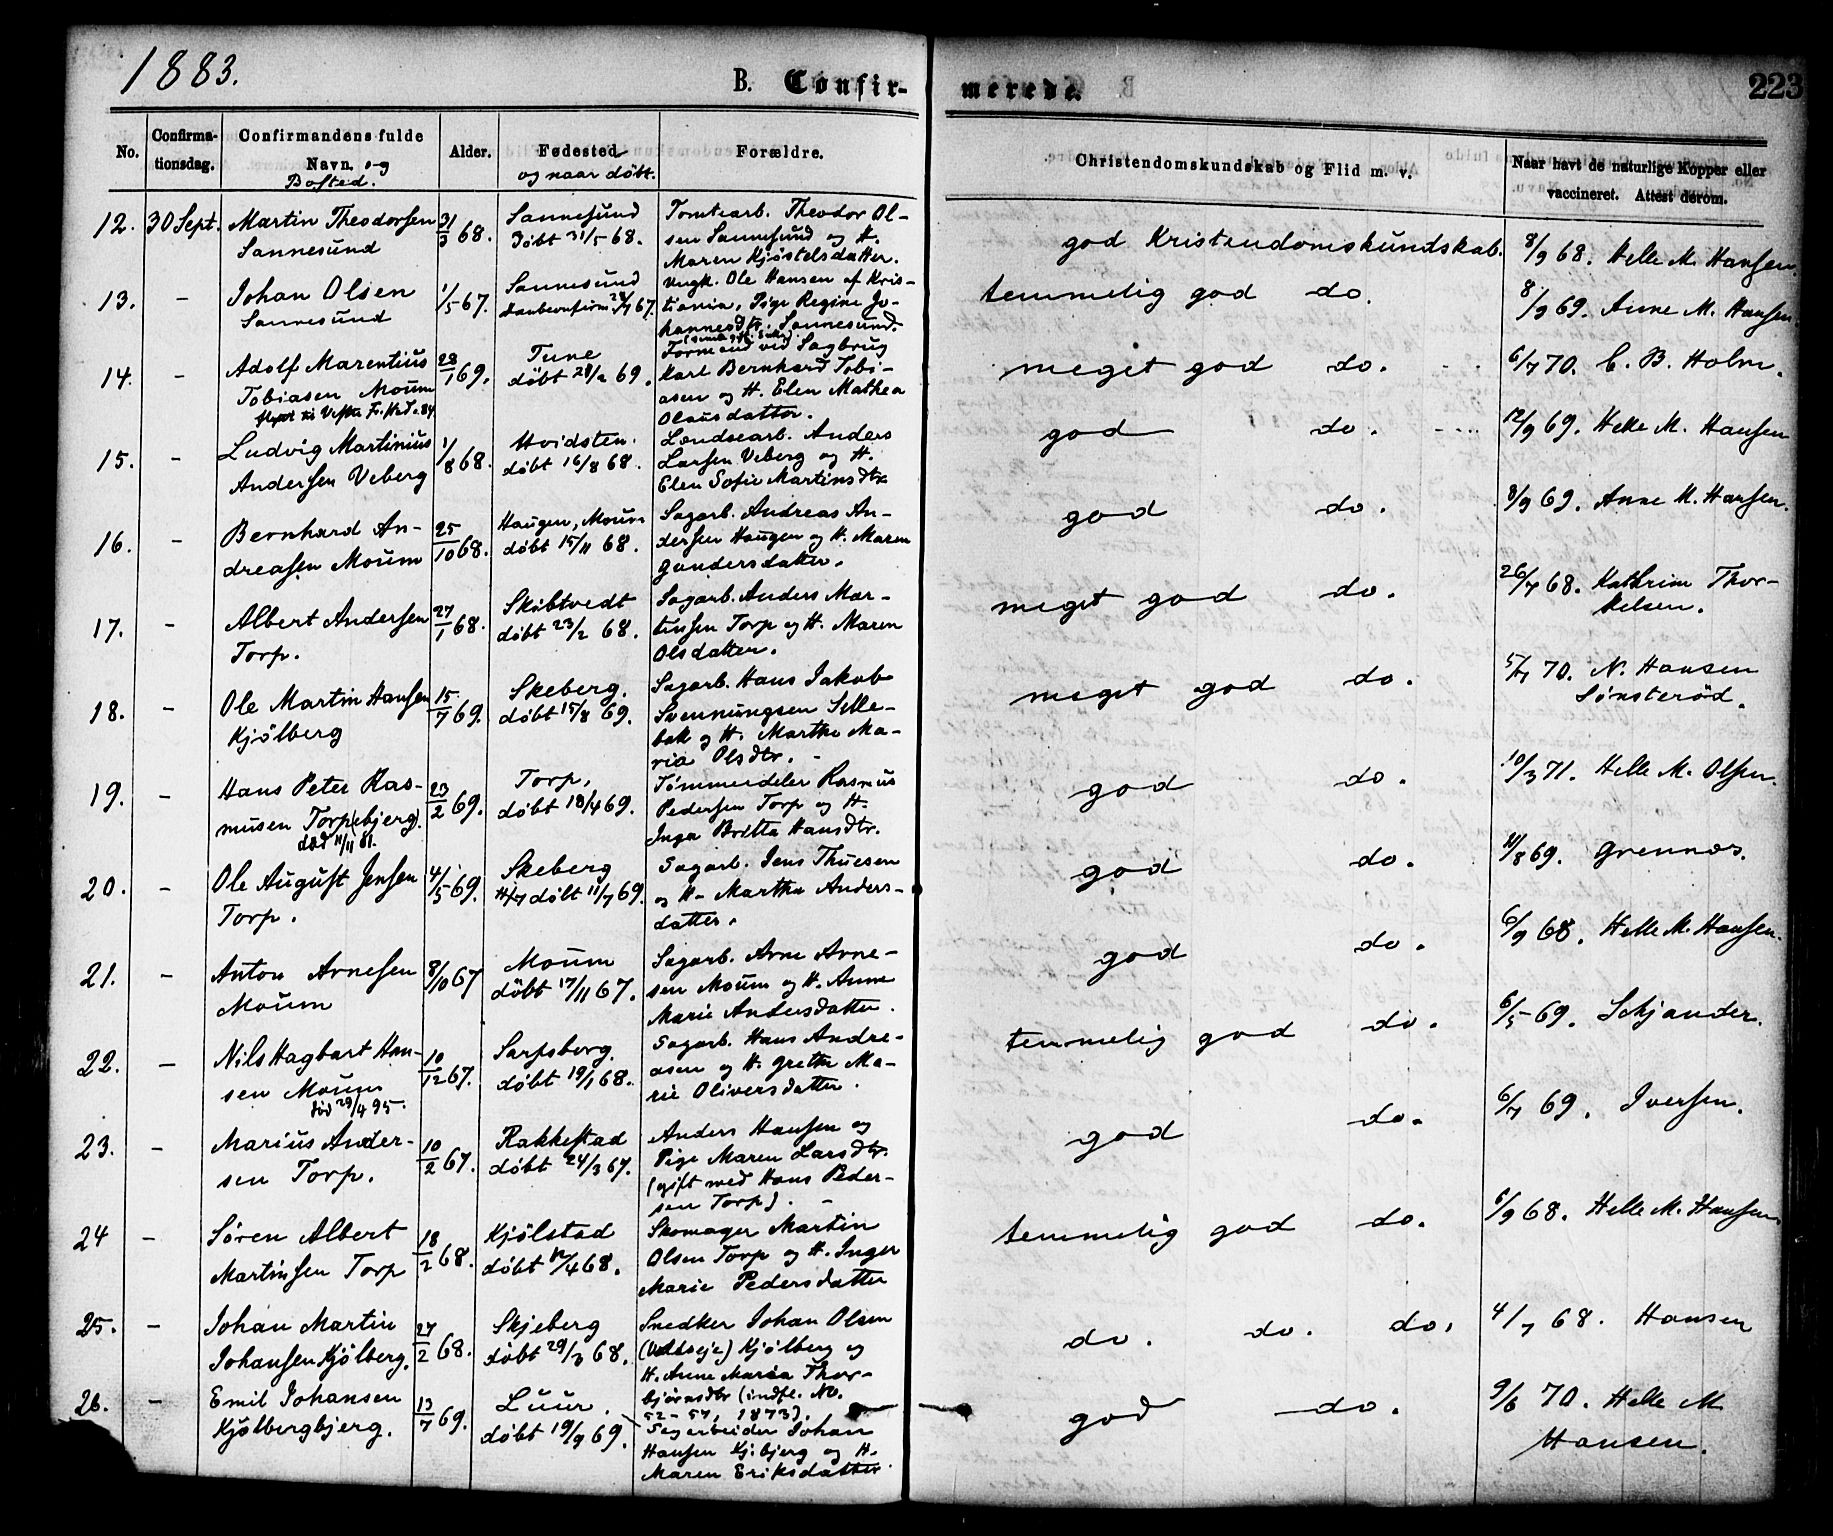 1883.
B. Confir-
merede.
223
No.
Confirma-
tionsdag.
Confirmandens fulde
Navn. og
Bosted.
Alder.
Fødested
og naar døbt.
Forældre.
Christendomskundskab og Flid m. v.
Naar havt de naturlige Kopper eller
vaccineret. Attest derom.
12. 30 Sept. Martin Theodorsen
Sannesund
31/3 68.
Sannesund
Døbt 31/5 68.
Tomtearb. Theodor Ol-
sen Sannesund og H.
Maren Kjøstelsdatter.
god Kristendomskundskab.
8/9 68. Helle M. Hansen.
13. - Johan Olsen
Sannesund
1/5 67.
Sannesund
67.
Ungk. Ole Hansen af Kris-
tiania, Pige Regine Jo-
hannesdtr. Sannesund.
temmelig god do.
8/9 69. Anne M. Hansen.
14. - Adolf Marentius
Tobiasen Moum
28/1 69.
Tune
døbt 28/2 69.
Formand ved Sagbrug
Karl Bernhard Tobi-
asen og H. Elen Mathea
Olausdatter.
meget god do.
6/7 70. C. B. Holm.
15. - Ludvig Martinius
Andersen Veberg
1/8 68.
Hvidsten.
døbt 16/8 68.
Lendsearb. Anders
Larsen Veberg og H.
Elen Sofie Martinsdtr
god do.
12/9 69. Helle M. Hansen
16. - Bernhard An-
dreasen Moum
25/10 68.
Haugen, Moum
døbt 15/11 68.
Sagarb. Andreas An-
dersen Haugen og H. Maren
Gundersdatter.
god do.
8/9 69. Anne M. Hansen.
17. - Albert Andersen
Torp.
27/1 68.
Skibtvedt
døbt 23/2 68.
Sagarb. Anders Mar-
tinsen Torp og H. Maren
Olsdatter.
meget god do.
26/7 68. Kathrine Thor-
kelsen.
18. - Ole Martin Hansen
Kjølberg
15/7 69.
Skeberg.
døbt 15/8 69.
Sagarb. Hans Jakob
Svennungsen Selle-
bak og H. Marthe Ma-
ria Olsdtr.
meget god do.
5/7 70. N. Hansen
Sønsterød.
19. - Hans Peter Ras-
musen Torp(bjerg).
død 11/11 81.
23/2 69.
Torp,
døbt 18/4 69.
Tømmerdeler Rasmus
Pedersen Torp og H.
Inga Britta Hansdtr.
god do.
10/3 71. Helle M. Olsen.
20. - Ole August Jensen
Torp.
4/5 69.
Skeberg
døbt 11/7 69.
Sagarb. Jens Thuesen
og H- Martha Anders-
datter.
god do.
11/8 69. Grennæs.
21. - Anton Arnesen
Moum
8/10 67
Moum
døbt 17/11 67.
Sagarb. Arne Arne-
sen Moum og H. Anne
Marie Andersdatter.
god do.
6/9 68. Helle M. Hansen.
22. - Nils Hagbart Han-
sen Moum
død 29/4 95.
10/12 67.
Sarpsborg.
døbt 19/1 68.
Sagarb. Hans Andre-
asen og H. Grethe Ma-
rie Oliversdatter.
temmelig god do.
6/5 69. Schjander.
23. - Marius Ander-
sen Torp.
10/2 67.
Rakkestad
døbt 24/3 67.
Anders Hansen og
Pige Maren Larsdtr.
(gift med Hans Peder-
sen Torp). -
god do.
6/7 69. Iversen.
24 - Søren Albert
Martinsen Torp
18/2 68.
Kjølstad
døbt 12/4 68.
Skomager Martin
Olsen Torp og H. Inger
Marie Pedersdatter
temmelig god do.
6/9 68. Helle M. Hansen
25. - Johan Martin
Johansen Kjølberg.
27/2 68.
Skjeberg
døbt 29/3 68.
Snedker Johan Olsen
Kjølberg og
H. Anne Maria Thor-
bjørnsdtr (indfl. No.
52-57, 1873).
do. do. do.
4/7 68. Hansen
26. - Emil Johansen
Kjølbergbjerg.
13/7 69.
Luur.
døbt 19/9 69.
Sagarbeider Johan
Hansen Kj.bjerg og H.
Maren Eriksdatter
god do.
9/6 70. Helle M
Hansen.